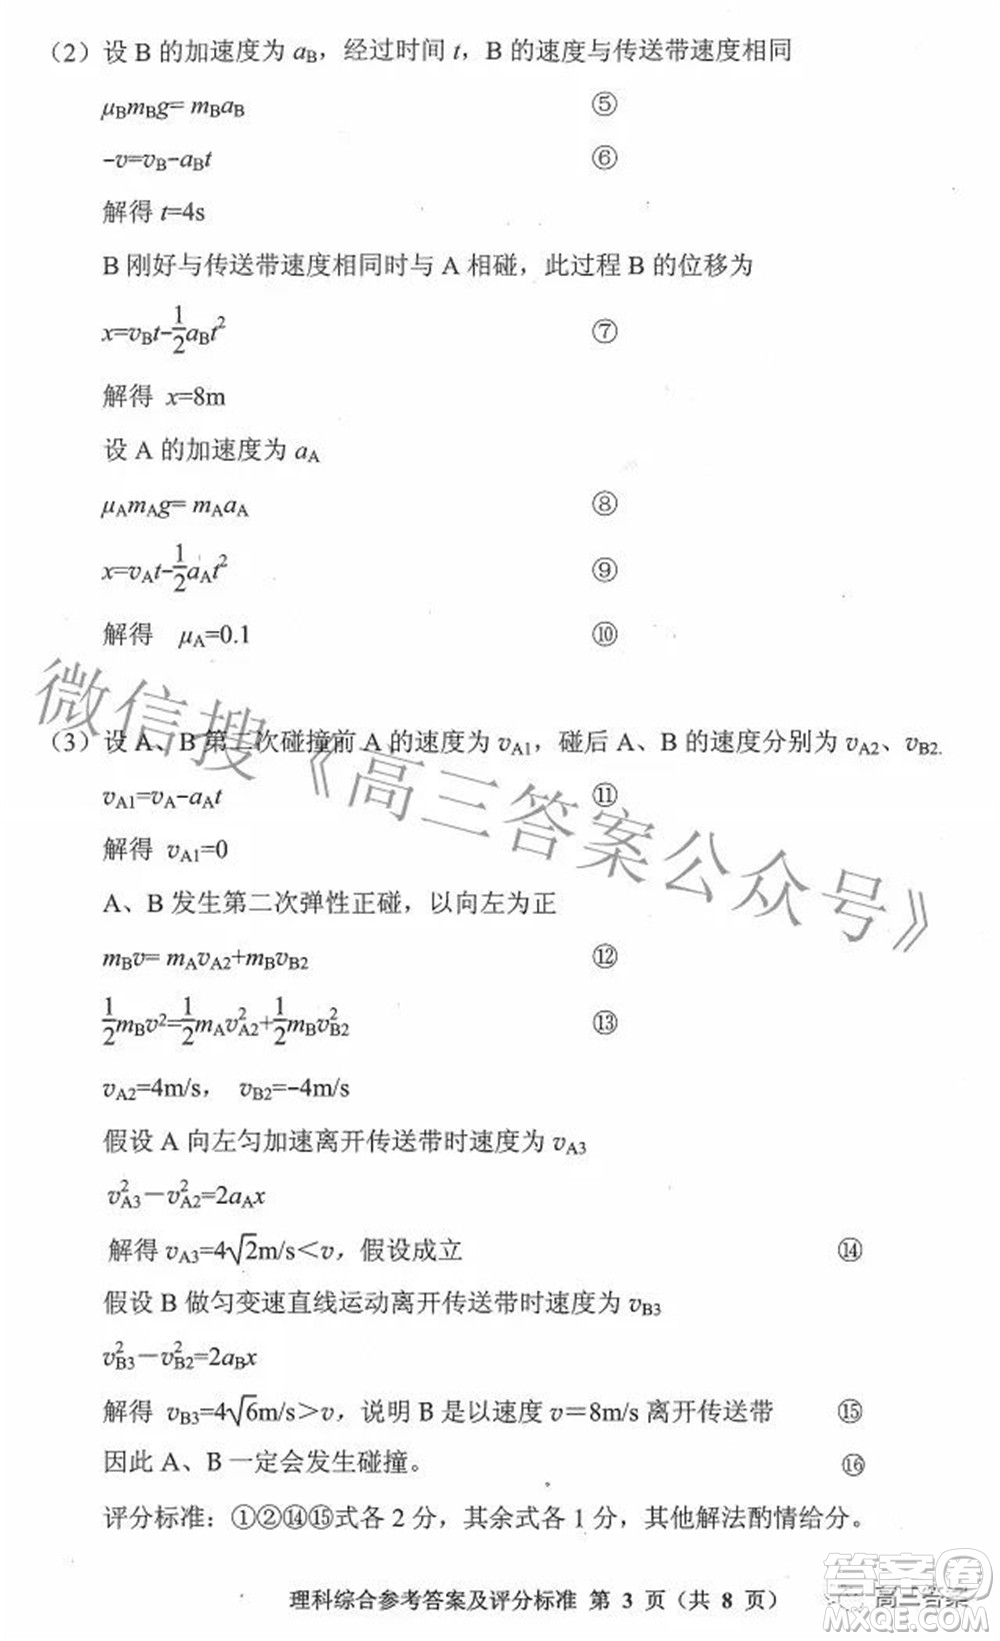 （2）设 B 的加速度为 aB，经过时间 t，B 的速度与传送带速度相同
μBmBg= mBaB ⑤
-v=vB-aBt ⑥
解得 t=4s
B 刚好与传送带速度相同时与 A 相碰，此过程 B 的位移为
x=vBt-1/2aBt² ⑦
解得 x=8m
设 A 的加速度为 aA
μAmAg= mAaA ⑧
x=vAt-1/2aAt² ⑨
解得 μA=0.1 ⑩
微信搜《高三答案公众号》
（3）设 A、B 第二次碰撞前 A 的速度为 vA1，碰后 A、B 的速度分别为 vA2、vB2.
vA1=vA-aAt ⑪
解得 vA1=0
A、B 发生第二次弹性正碰，以向左为正
mBv= mAvA2+mBvB2 ⑫
1/2mBv²=1/2mAvA2²+1/2mBvB2² ⑬
vA2=4m/s， vB2=-4m/s
假设 A 向左匀加速离开传送带时速度为 vA3
vA3²－vA2²=2aAx
解得 vA3=4√2m/s＜v，假设成立 ⑭
假设 B 做匀变速直线运动离开传送带时速度为 vB3
vB3²－vB2²=2aBx
解得 vB3=4√6m/s＞v，说明 B 是以速度 v＝8m/s 离开传送带 ⑮
因此 A、B 一定会发生碰撞。 ⑯
评分标准：①②⑭⑮式各 2 分，其余式各 1 分，其他解法酌情给分。
理科综合参考答案及评分标准 第 3 页（共 8 页）
高三答案
答案卷
MXQE.COM